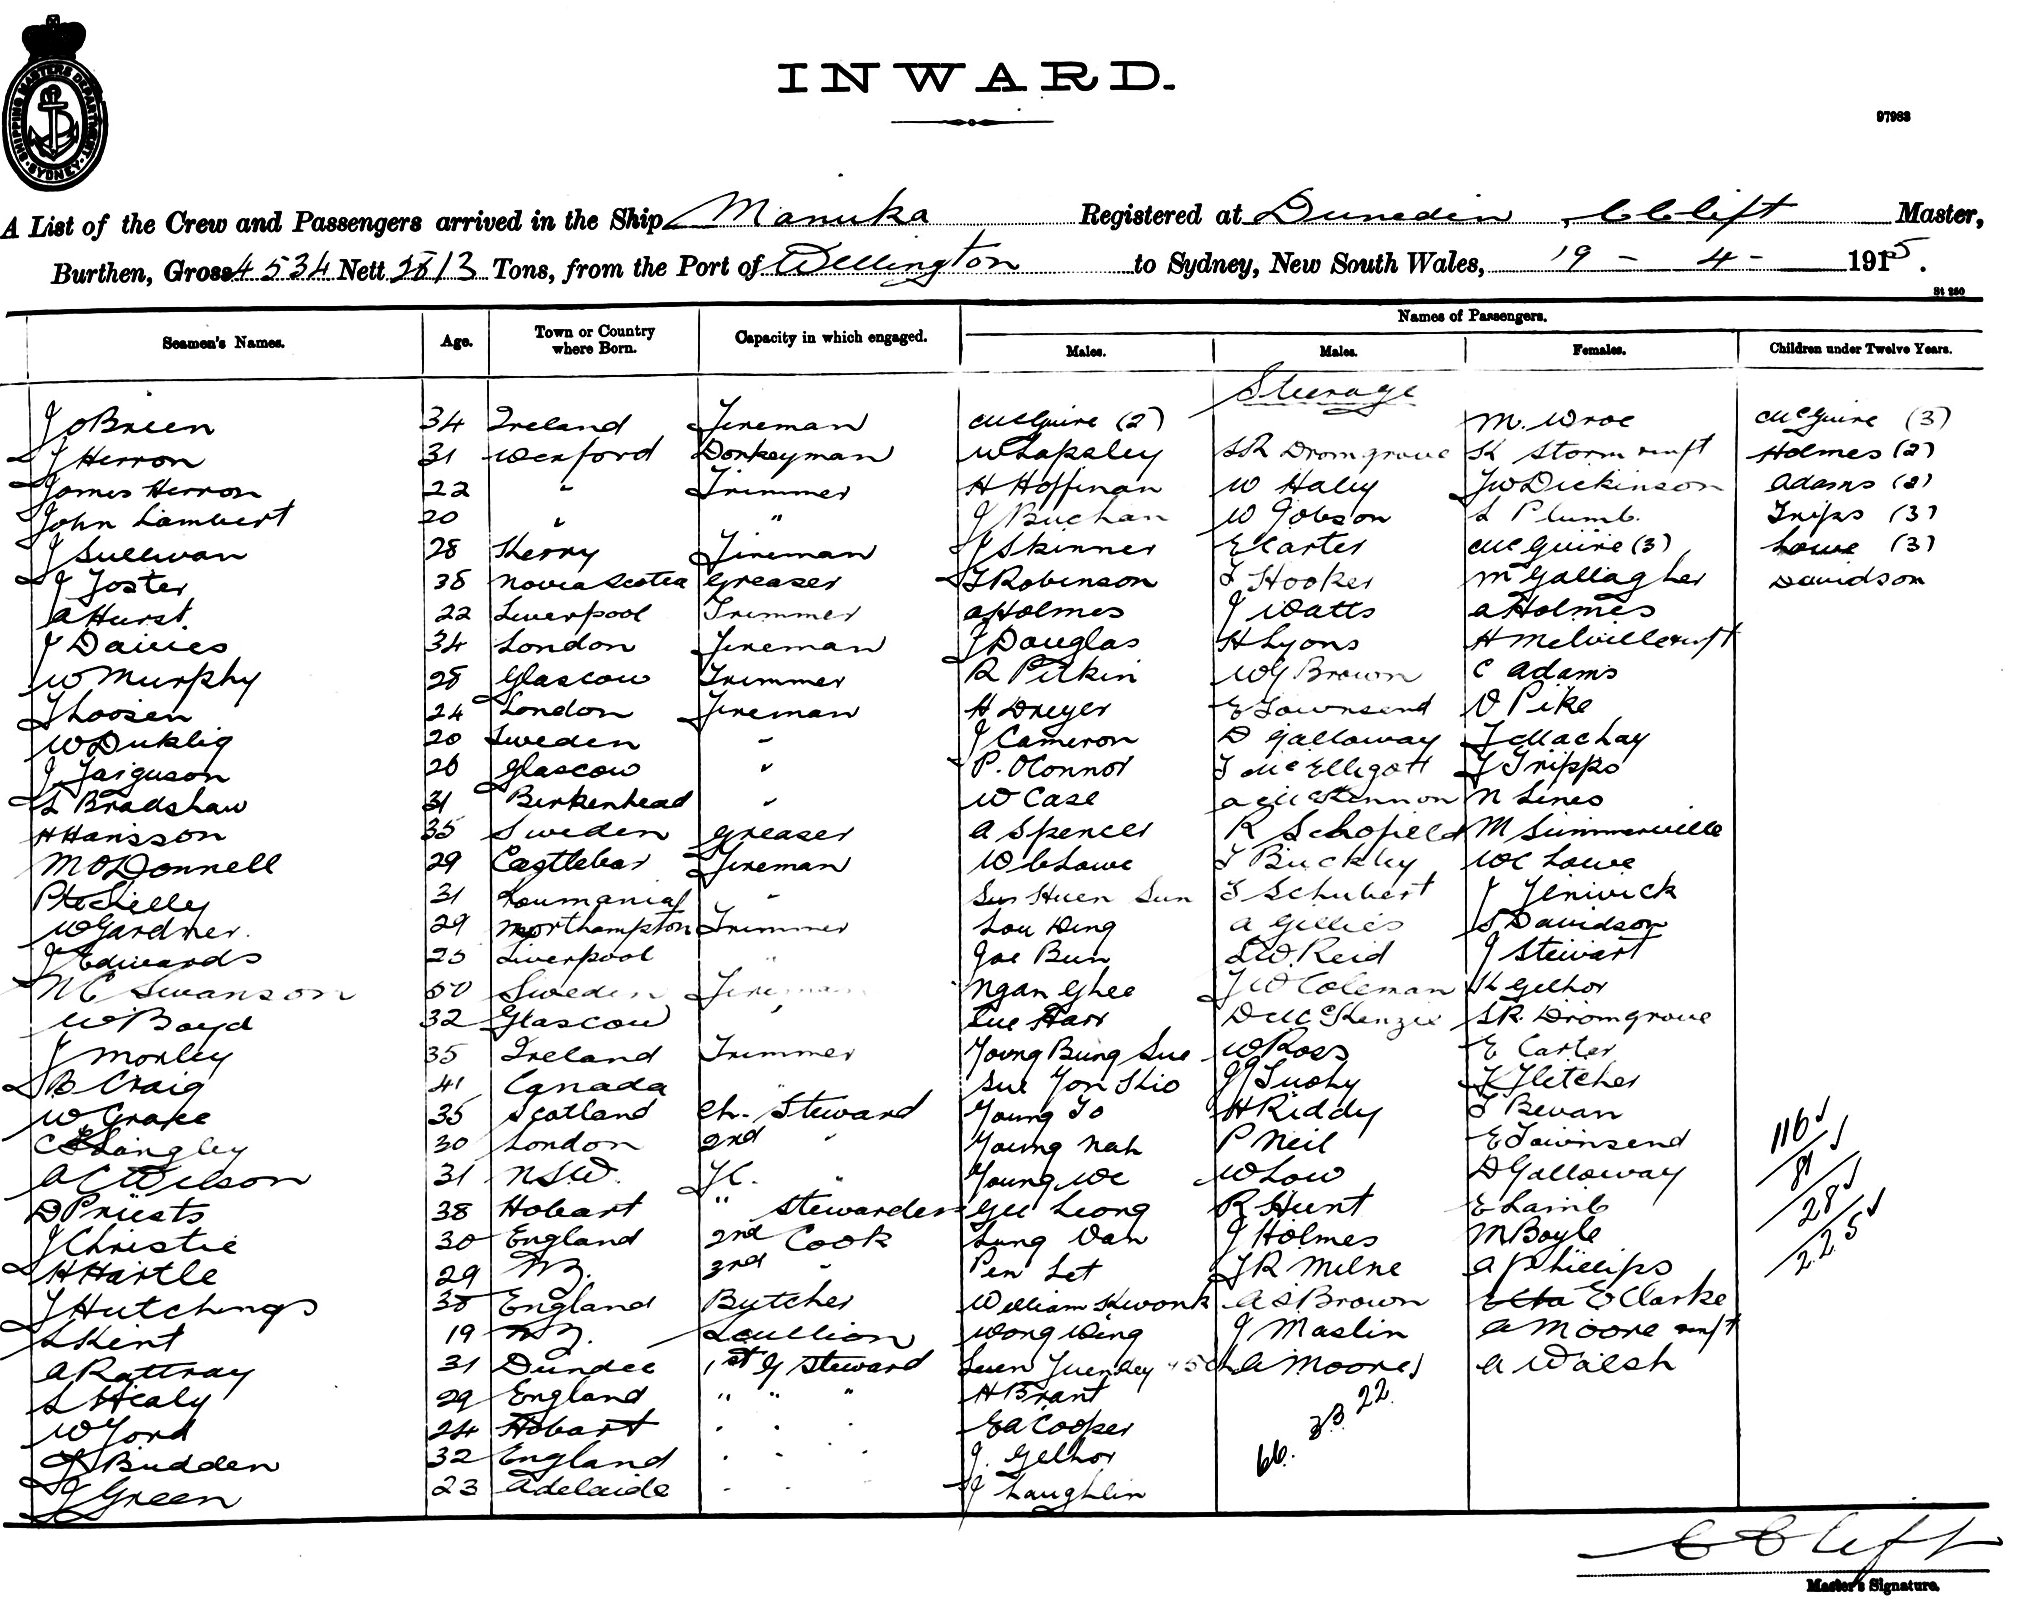 SHIPPING MASTERS DEPARTMENT SYDNEY
INWARD.
97983
A List of the Crew and Passengers arrived in the Ship Manuka Registered at Dunedin, C Clift Master,
Burthen, Gross 4534 Nett Tons, from the Port of Wellington to Sydney, New South Wales, 19 - 4 - 1915.
St 250
Names of Passengers.
Seamen's Names. Age. Town or Country where Born. Capacity in which engaged. Males. Males. Females. Children under Twelve Years.
Steerage
J OBrien 34 Ireland Fireman McGuire (2) M. Wroe McGuire (3)
J Herron 31 Wexford Donkeyman W Lapsley SR Dromgroue Holmes (2)
James Herron 22 " Trimmer H Hoffman W Haley JW Dickinson Adams (2)
John Lambert 20 " " J Buchan W Jobson L Plumb. Tripps (3)
J Sullivan 28 Kerry Fireman J Skinner E Carter McGuire (3) Lowe (3)
J Foster 38 Novia Scotia Greaser T Robinson T Hooker M Gallagher Davidson
A Hurst. 22 Liverpool Trimmer A Holmes J Watts A Holmes
J Davies 34 London Fireman J Douglas H Lyons H Melville
W Murphy 28 Glascow Trimmer R Pitkin WG Brown C Adams
24 London Fireman H Dreyer E Townsend O Pike
W 20 Sweden " J Cameron D Galloway
J Farguson 26 Glascow " P. OConnor T McElligott J Tripps
L Bradshaw 31 Birkenhead " W Case A McKennon N Lines
H Hansson 35 Sweden Greaser A Spencer R Schofield M Summerville
M ODonnell 29 Castlebar Fireman W C Lowe T Buckley WC Lowe
31 Roumania " Sun Huen Sun T Schubert J Fenwick
W Gardner. 29 Northampton Trimmer Lou King A Gillies S Davidson
J Edwards 25 Liverpool " Joe Bun LW Reid J Stewart
N C Swanson 50 Sweden Fireman Ngan Ghee JW Coleman K Gelhor
W Boyd 32 Glascow " Sue Harr D McKenzie SR. Dromgroue
J Morley 35 Ireland Trimmer Young Bung Sue W Ross E Carter
B Craig 41 Canada " Sue Yon Shio JJ Tuohy K Fletcher
W Grace 35 Scotland Ch. Steward Young To H Riddy T Bevan
C Langley 30 London 2nd " Young Nah P Neil E Townsend
A C Wilson 31 NSW. FC. " Young We W Low D Galloway
D Priests 38 Hobart " Stewardess Gee Leong R Hunt E Lamb
J Christie 30 England 2nd Cook Lung Wan J Holmes M Boyle
H Hartle 29 NZ. 3rd " Pen Let JR Milne A Phillips
J Hutchings 38 England Butcher William Kwonk A S Brown E Clarke
L Kent 19 NZ. Scullion Wong Wing J Maslin A Moore
A Rattray 31 Dundee 1st G Steward A Moore A Walsh
L Healy 29 England " " " H Brant
W Ford 24 Hobart " " " EA Cooper
J Budden 32 England " " " J. Gelhor
J Green 23 Adelaide " " " J Laughlin
116
81
28
225
22.
33
66.
C Clift
Master's Signature.